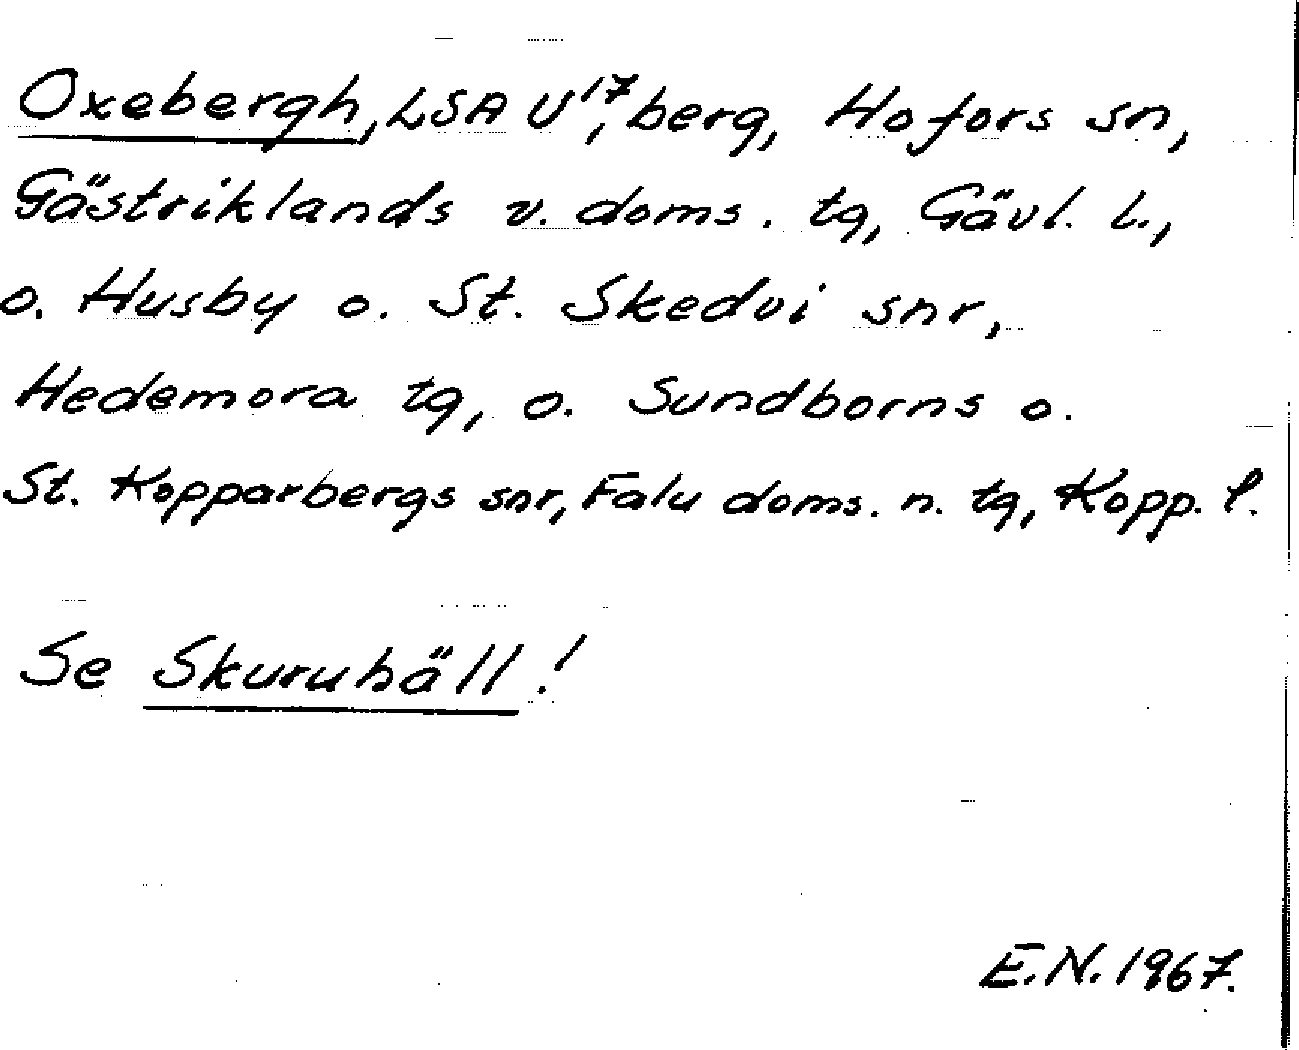 Oxebergh, LSA U¹⁷, berg, Hofors sn,
Gästriklands v. doms. tg, Gävl. L.,
o. Husby o. St. Skedvi snr,
Hedemora tg, o. Sundborns o.
St. Kopparbergs snr, Falu doms. n. tg, Kopp. l.
Se Skuruhäll!
E.N. 1967.